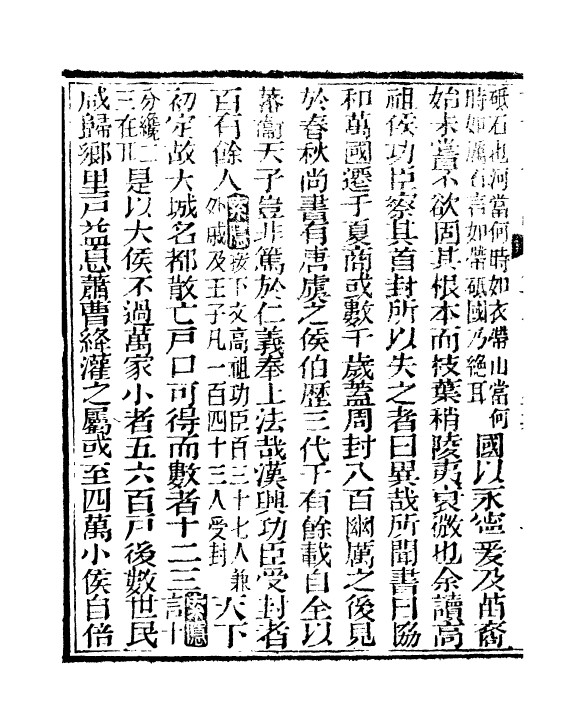 砥石也河當何時如衣帶山當何
時如厲石言如帶砥國乃絕耳
國以永寧爰及苗裔
始未嘗不欲固其根本而枝葉稍陵夷衰微也余讀高
祖侯功臣察其首封所以失之者曰異哉所聞書曰協
和萬國遷于夏商或數千歲蓋周封八百幽厲之後見
於春秋尚書有唐虞之侯伯歷三代千有餘載自全以
蕃衞天子豈非篤於仁義奉上法哉漢興功臣受封者
百有餘人索隱
按下文高祖功臣百三十七人兼
外戚及王子凡一百四十三人受封
天下
初定故大城名都散亡戶口可得而數者十二三索隱十
分纔二
三在耳
是以大侯不過萬家小者五六百戶後數世民
咸歸鄉里戶益息蕭曹絳灌之屬或至四萬小侯自倍